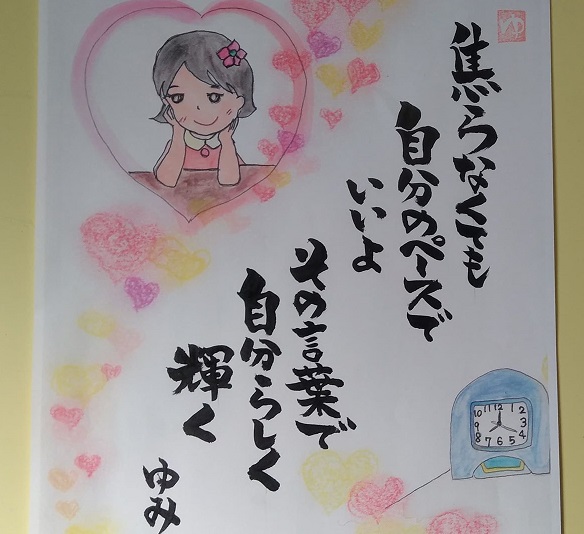 ゆ
焦らなくても
自分のペースで
いいよ
その言葉で
自分らしく
輝く
ゆみ
10 11 12 1 2 3 4 5 6 7 8 9